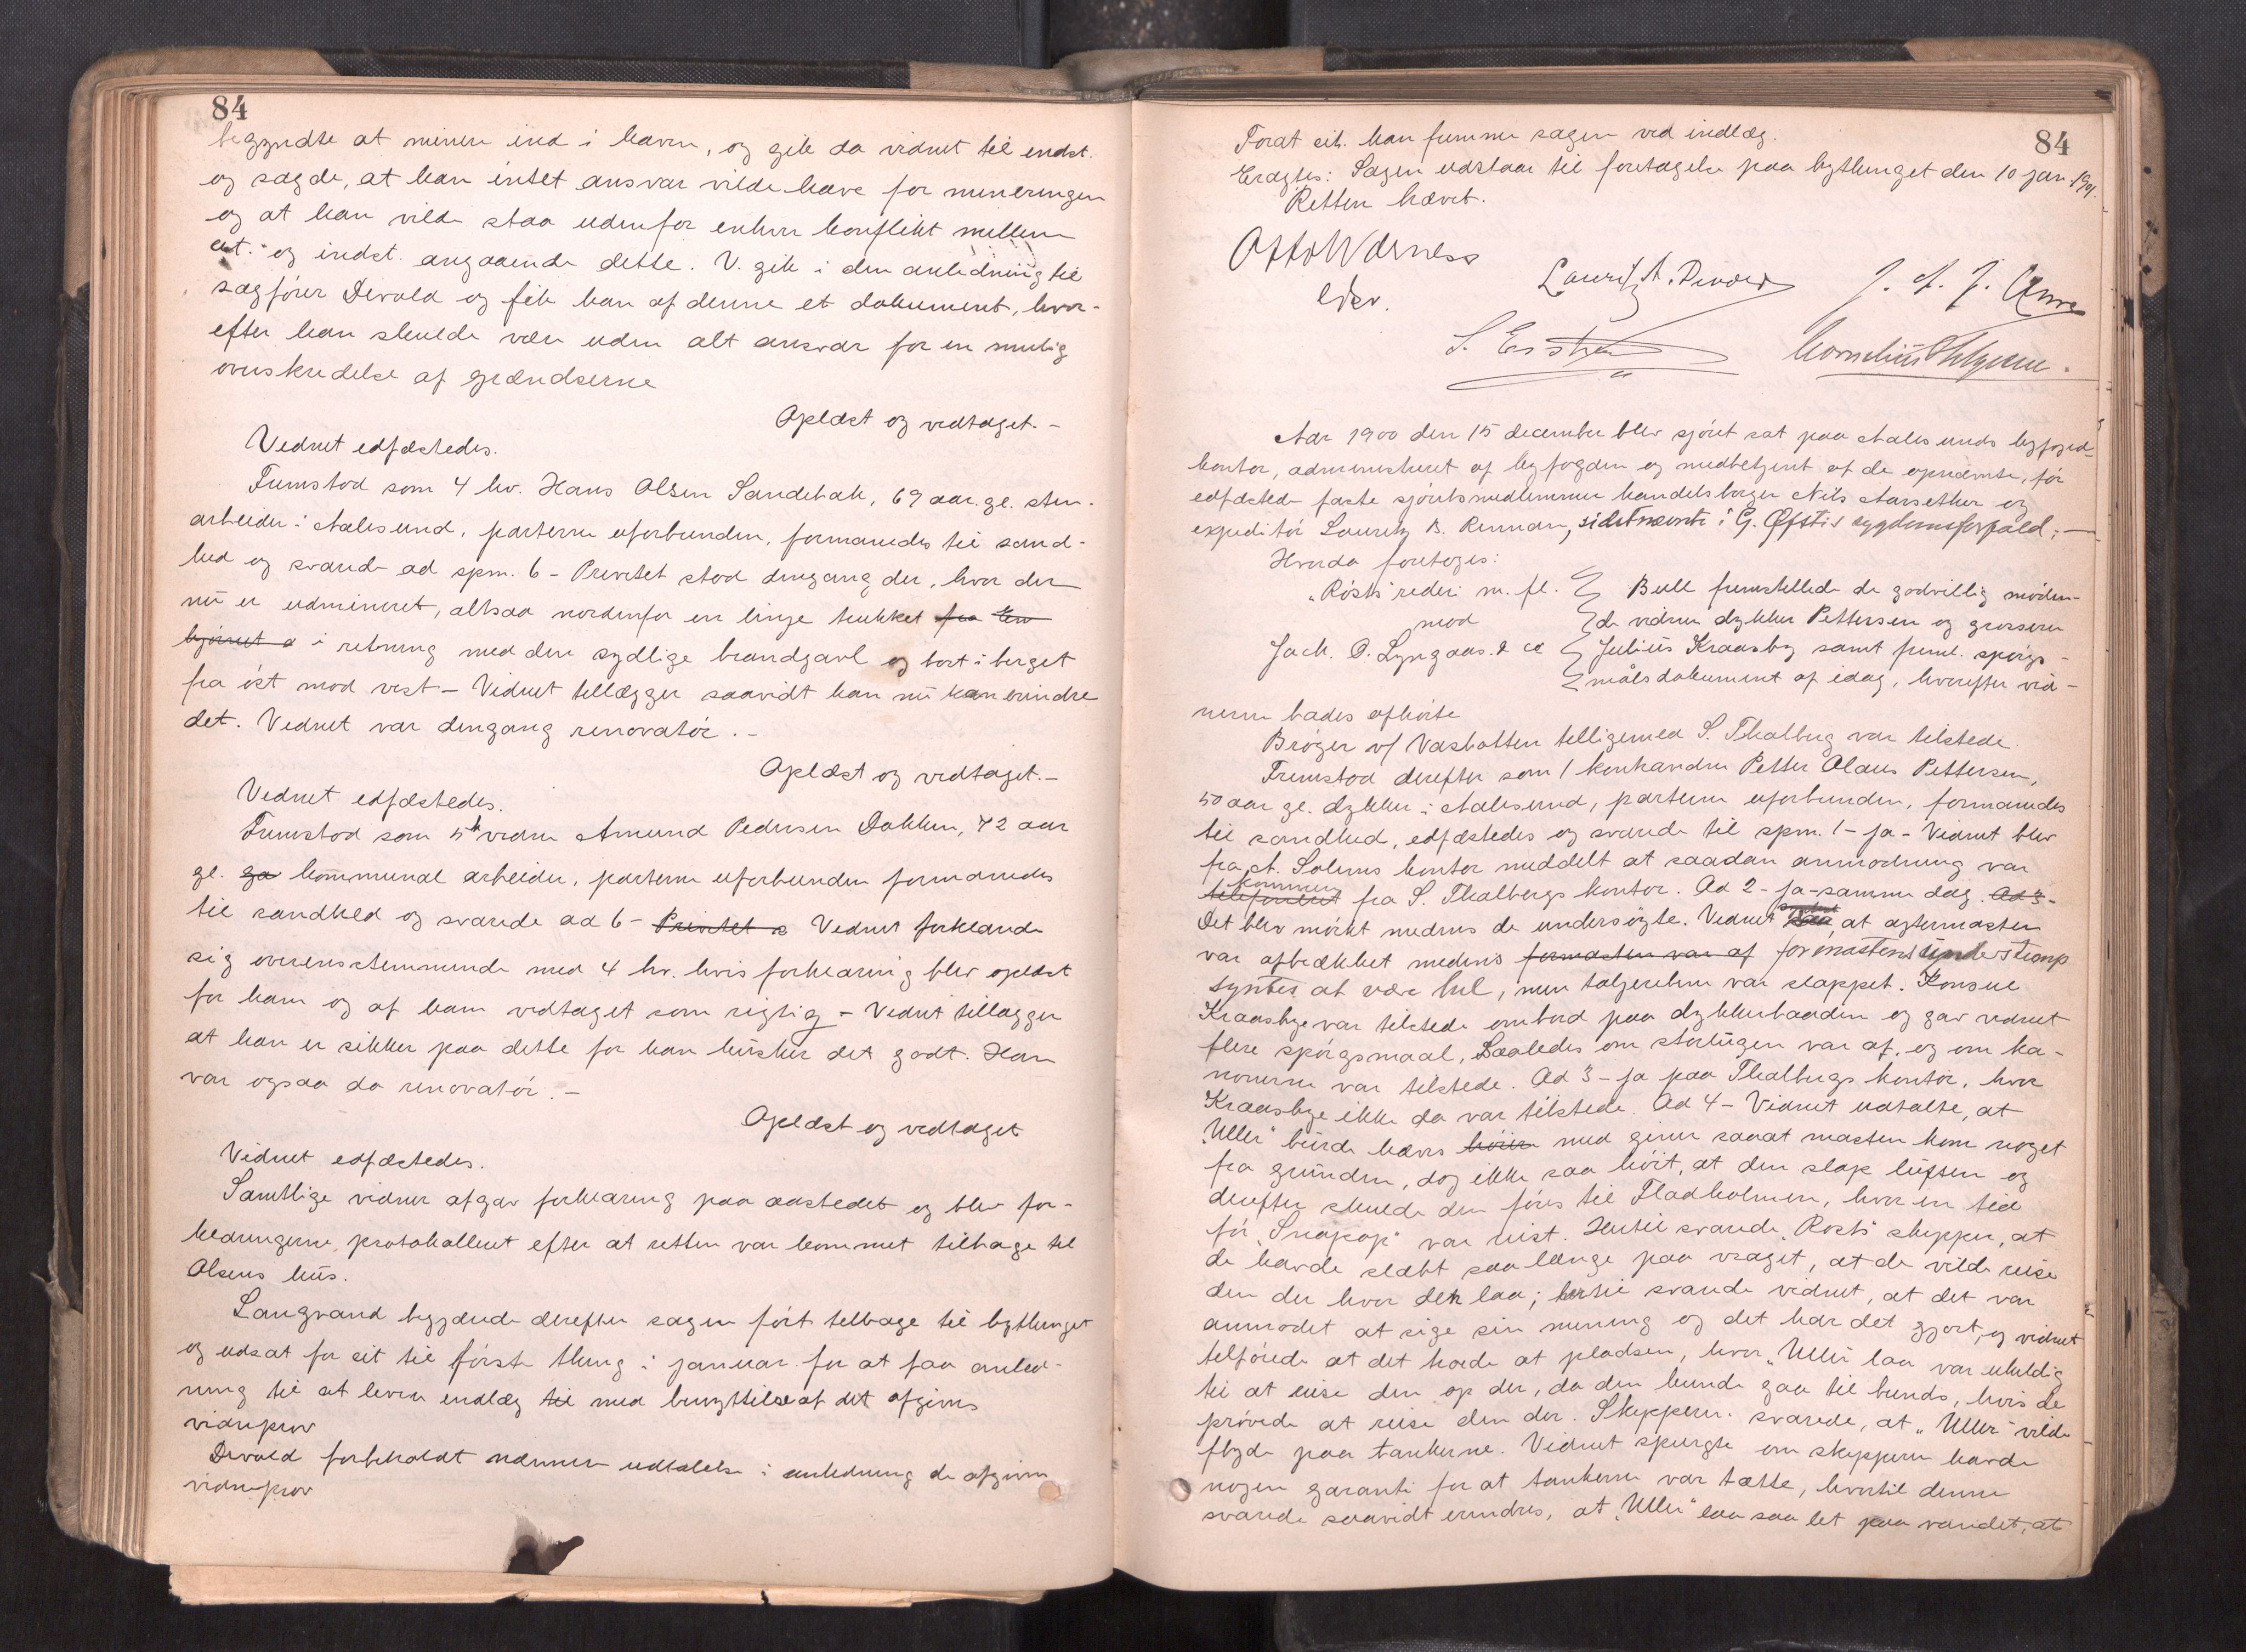 84
begyndte at minere ind i haven, og gik da vidnet til indst.
og sagde, at han intet ansvar vilde have for mineringen
og at han vilde staa udenfor enhver konflikt mellem
cit. og indst. angaaende dette. V. gik i den anledning til
sagfører Devold og fik han af denne et dokument, hvor-
efter han skulde være uden alt ansvar for en mulig
overskridelse af grændserne
Oplæst og vedtaget.-
Vidnet edfæstedes.
Fremstod som 4 hv. Hans Olsen Sandebak, 69 aar gl. sten-
arbeider i Aalesund, parterne uforbunden, formanedes til sand-
hed og svarede ad spm. 6 - Privetet stod dengang der, hvor der
nu er udmineret, altsaa nordenfor en linje trukket fra
hjørnet a i retning med den sydlige brandgavl og bort i berget
fra øst mod vest - Vidnet tillægger saavidt han nu kan erindre
det. Vidnet var dengang renovatør.-
Oplæst og vedtaget.-
Vidnet edfæstedes.
Fremstod som 5te vidne Amund Pedersen Dokken, 72 aar
gl. ga kommunal arbeider, parterne uforbunden formanedes
til sandhed og svarede ad 6 - Privetet s Vidnet forklarede
sig overensstemmende med 4 hv. hvis forklaring blev oplæst
for ham og af ham vedtaget som rigtig - Vidnet tillægger
at han er sikker paa dette for han husker det godt. Han
var ogsaa da renovatør.-
Oplæst og vedtaget
Vidnet edfæstedes.
Samtlige vidner afgav forklaring paa aastedet og blev for-
klaringerne protokolleret efter at retten var kommet tilbage til
Olsens hus.
Langvand begjærede derefter sagen ført tilbage til bythinget
og udsat for sit til første thing i januar for at faa anled-
ning til at levere indlæg til med benyttelse af det afgivne
vidneprov
Devold forbeholdt nærmere udtalelse i anledning de afgivne
vidneprov
84
Forat cit. kan fremme sagen ved indlæg.
Eragtes: Sagen udstaar til foretagelse paa bythinget den 10 jan. 1901.
Retten hævet.
Otto Warness
edsv.
Lauritz A.
J. A. J.
S.
Kornelius
Aar 1900 den 15 december blev sjøret sat paa Aalesunds byfoged-
kontor, administreret af byfogden og medbetjent af de opnævnte, før
edfæstede faste sjøretsmedlemmer handelsborger Nils Aarsether og
expeditør Lauritz B. Renman, sidstnævnte i G. Øfstis sygdomsforfald;-
Hvorda foretoges:
"Røsts" rederi m. fl.
mod
Jack. O. Lyngaas & co
Bull fremstillede de godvillig møden-
de vidner dykker Pettersen og grosserer
Julius Kraasby samt freml. spørgs-
målsdokument af idag, hvorefter vid-
nerne bades afhørte
Brøger v/ Vasbotten tilligemed S. Thalberg var tilstede
Fremstod derefter som 1 kontravidne Petter Olaus Pettersen,
50 aar gl. dykker i Aalesund, parterne uforbunden, formanedes
til sandhed, edfæstedes og svarede til spm. 1 - ja - Vidnet blev
fra A. Solems kontor meddelt at saadan anmodning var
kommen
telefoneret fra S. Thalbergs kontor. Ad 2 - ja - samme dag. Ad 3-
Det blev mørkt medens de undersøgte. Vidnet saa at agtermasten
var afbrækket medens formasten var af formastens understomp
syntes at være hel, men taljerebene var slappet. Konsul
Kraasbye var tilstede ombord paa dykkerbaaden og gav vidnet
flere spørgsmaal, saaledes om storlugen var af, og om ka-
nonerne var tilstede. Ad 3 - ja paa Thalbergs kontor, hvor
Kraasbye ikke da var tilstede. Ad 4 - Vidnet udtalte, at
"Uller" burde hæves høiere med giner saaat masten kom noget
fra grunden, dog ikke saa høit, at den slap luften og
derefter skulde den føres til Fladholmen, hvor en tid
før "Snapop" var reist. Hertil svarede "Røsts" skipper, at
de havde slæbt saa længe paa vraget, at de vilde reise
den der hvor den laa; hertil svarede vidnet, at det var
anmodet at sige sin mening og det har det gjort, og vidnet
tilføiede at det troede at pladsen, hvor "Uller" laa var uheldig
til at reise den op der, da den kunde gaa til bunds, hvis de
prøvede at reise den der. Skipperen svarede, at "Uller" vilde
flyde paa tankerne. Vidnet spurgte om skipperen havde
nogen garanti for at tankerne var tætte, hvortil denne
svarede saavidt erindres, at "Uller" laa saa let paa vandet, at